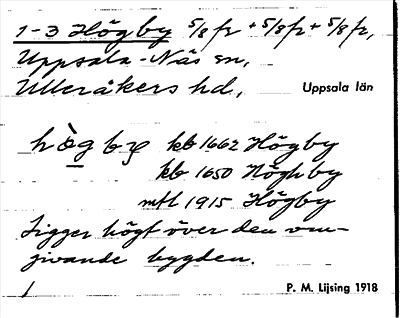 1-3 Högby 5/8 fr + 5/8 fr + 5/8 fr,
Uppsala-Näs sn,
Ulleråkers hd, Uppsala län
kb 1662 Högby
kb 1650 Högby
mtl 1915 Högby
Ligger högt över den om-
givande bygden.
1 P. M. Lijsing 1918